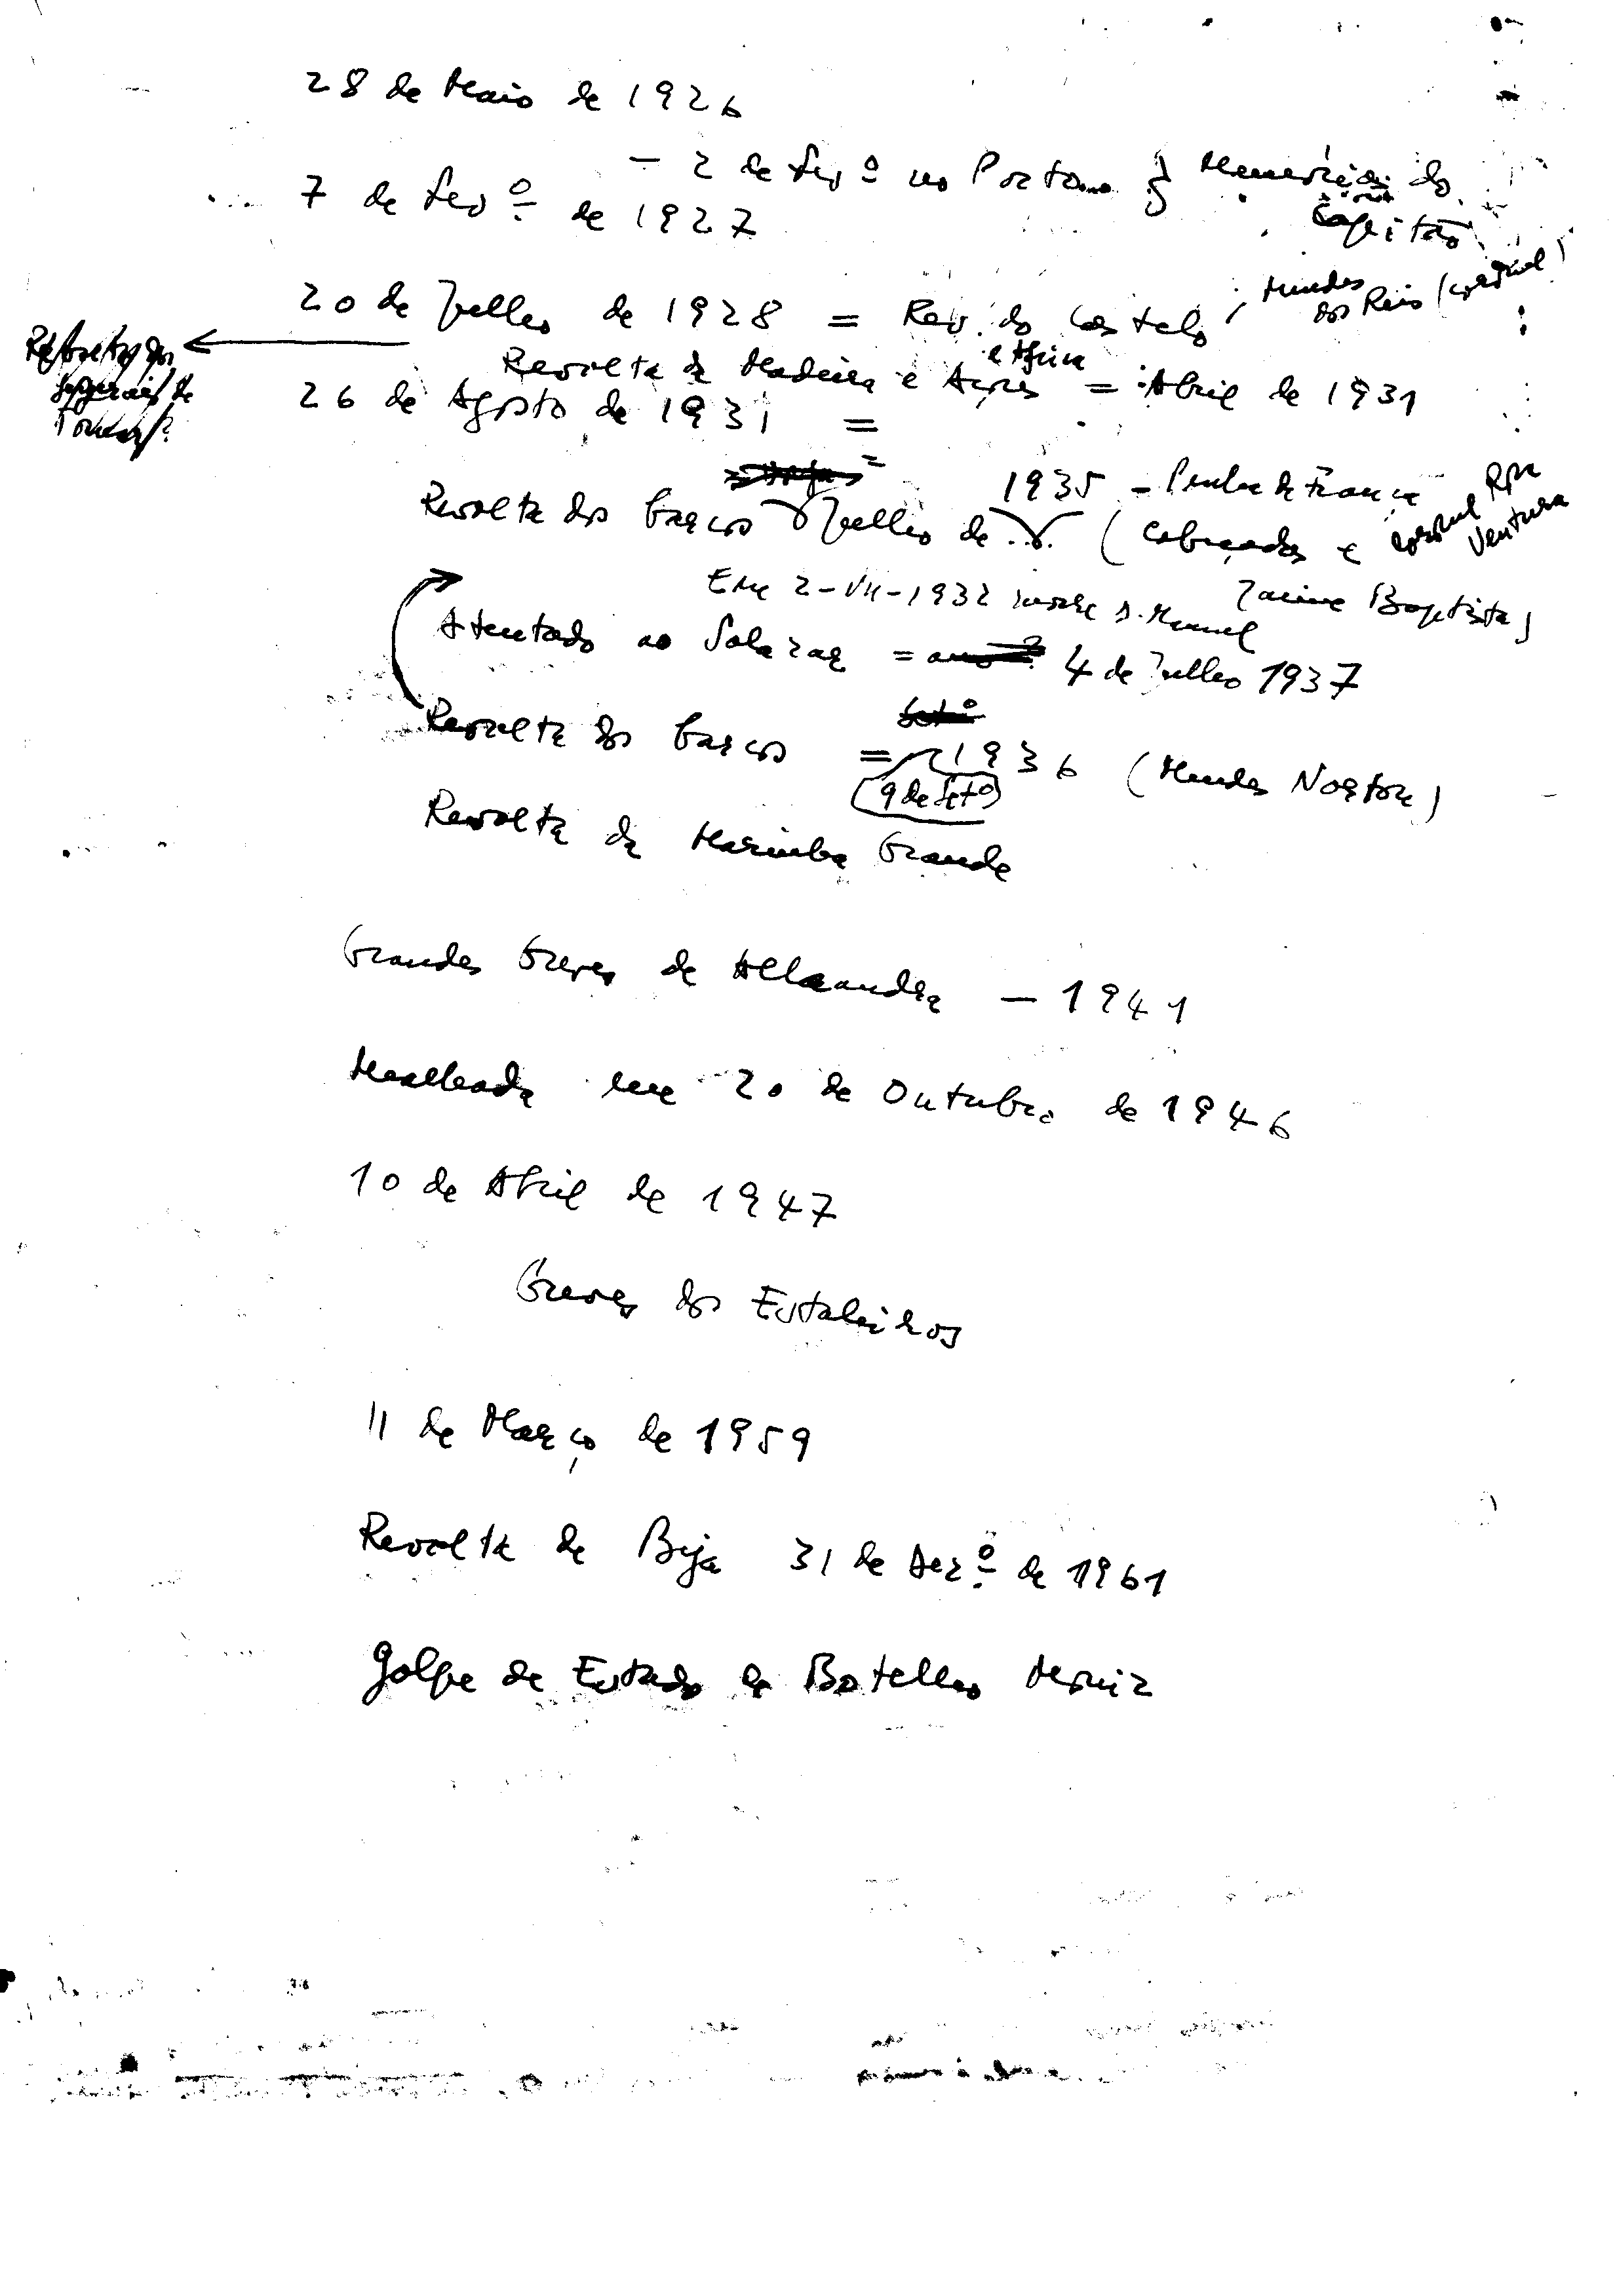 28 de Maio de 1926
– 2 de Fevº no Porto } Memórias do Capitão
7 de Fevº de 1927
20 de Julho de 1928 = Rev. do Castelo, Mendes dos Reis (coronel)
Revolta dos de Tomar?
Revolta da Madeira e Açores e Africa = Abril de 1931
26 de Agosto de 1931 =
1935 – Penha de França
Revolta dos barcos Julho de ... (Cabeçadas e coronel
Ventura
Em 2-VII-1932 morre D. Manuel
Jaime Baptista)
Atentado ao Salazar = 4 de Julho 1937
Revolta dos barcos = 1936 (Mendes Norton)
(9 de Setº)
Revolta da Marinha Grande
Grandes Greves de Almada – 1941
Mealhada em 20 de Outubro de 1946
10 de Abril de 1947
Greves dos Estaleiros
11 de Março de 1959
Revolta de Beja 31 de Dezº de 1961
Golpe de Estado do Botelho Moniz